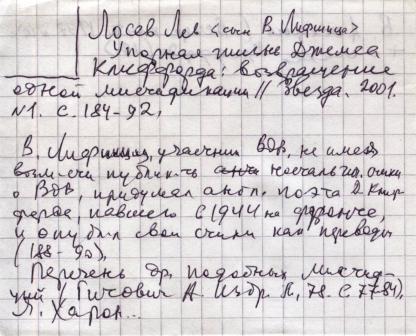 Лосев Лев <сын В. Лифшица>
Упорная жизнь Джемса
Клиффорда: возвращение
одной мистификации // Звезда. 2001.
N1. С. 184-92.
В. Лифшиц, участник ВОВ, не имея
возм-сти публик-ть печальн. стихи
о ВОВ, придумал англ. поэта Д. Клиф
форда, павшего в 1944 на фронте,
и опубл свои стихи как переводы
(188-90).
Перечень др. подобных мистифи-
каций / Гитович А. Избр. Л., 78. С. 77-84),
Я. Харон...